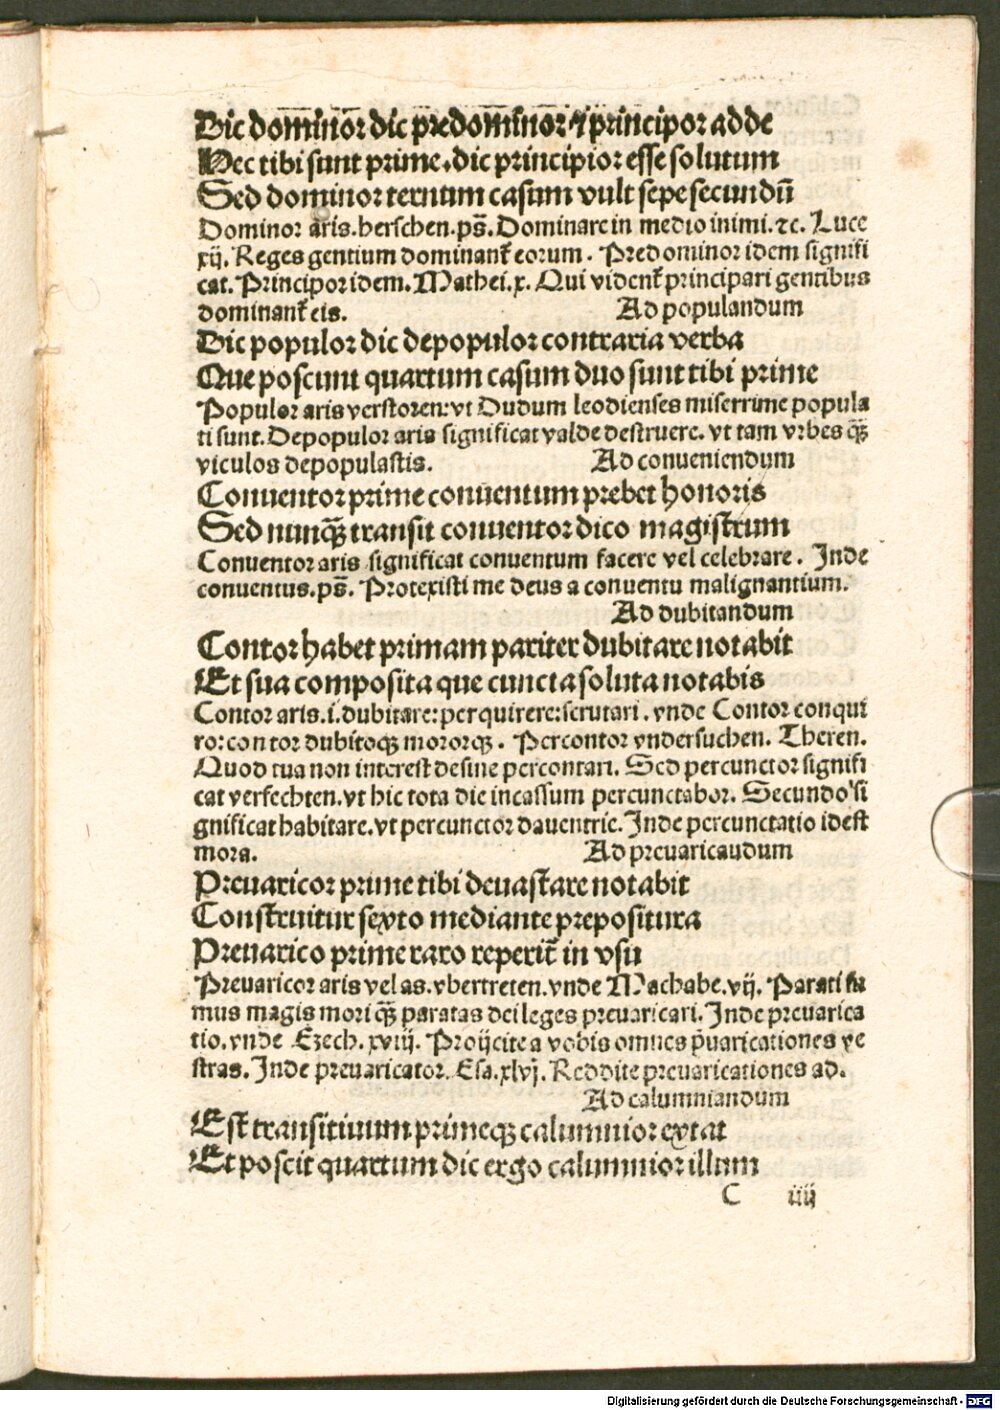 Dic dominor dic predominor ⁊ principor adde
Hec tibi sunt prime.dic principior esse solutum
Sed dominor ternum casum vult sepe secundū
Dominor aris.herschen.ps̄.Dominare in medio inimi.⁊c. Luce
xij.Reges gentium dominant̄ eorum. Predominor idem signifi
cat.Principor idem.Mathei.x. Qui vident̄ principari gentibus
dominant̄ eis. Ad populandum
Dic populor dic depopulor contraria verba
Que poscunt quartum casum duo sunt tibi prime
Populor aris verstoren:vt Dudum leodienses miserrime popula
ti sunt.Depopulor aris significat valde destruere.vt tam vrbes qꝫ̄
viculos depopulastis. Ad conueniendum
Conuentor prime conuentum prebet honoris
Sed nunqꝫ̄ transit conuentor dico magistrum
Conuentor aris significat conuentum facere vel celebrare. Inde
conuentus.ps̄. Protexisti me deus a conuentu malignantium.
Ad dubitandum
Contor habet primam pariter dubitare notabit
Et sua composita que cuncta soluta notabis
Contor aris.i.dubitare:perquirere:scrutari.vnde Contor conqui
ro:contor dubitoqꝫ mororqꝫ. Percontor vndersuchen. Theren.
Quod tua non interest desine percontari. Sed percunctor signifi
cat verfechten.vt hic tota die incassum percunctabor. Secundo si
gnificat habitare.vt percunctor dauentrie.Inde percunctatio idest
mora. Ad preuaricaudum
Preuaricor prime tibi deuastare notabit
Construitur sexto mediante prepositura
Preuarico prime raro reperit̄ in vsu
Preuaricor aris vel as.vbertreten.vnde Machabe.vij. Parati su
mus magis mori qꝫ̄ paratas dei leges preuaricari.Inde preuarica
tio.vnde Ezech.xviij. Proijcite a vobis omnes p̄uaricationes ve
stras.Inde preuaricator. Esa.xlvj.Reddite preuaricationes ad.
Ad calumniandum
Est transitiuum primeqꝫ calumnior extat
Et poscit quartum dic ergo calumnior illum
C iiij
Digitalisierung gefördert durch die Deutsche Forschungsgemeinschaft - DFG